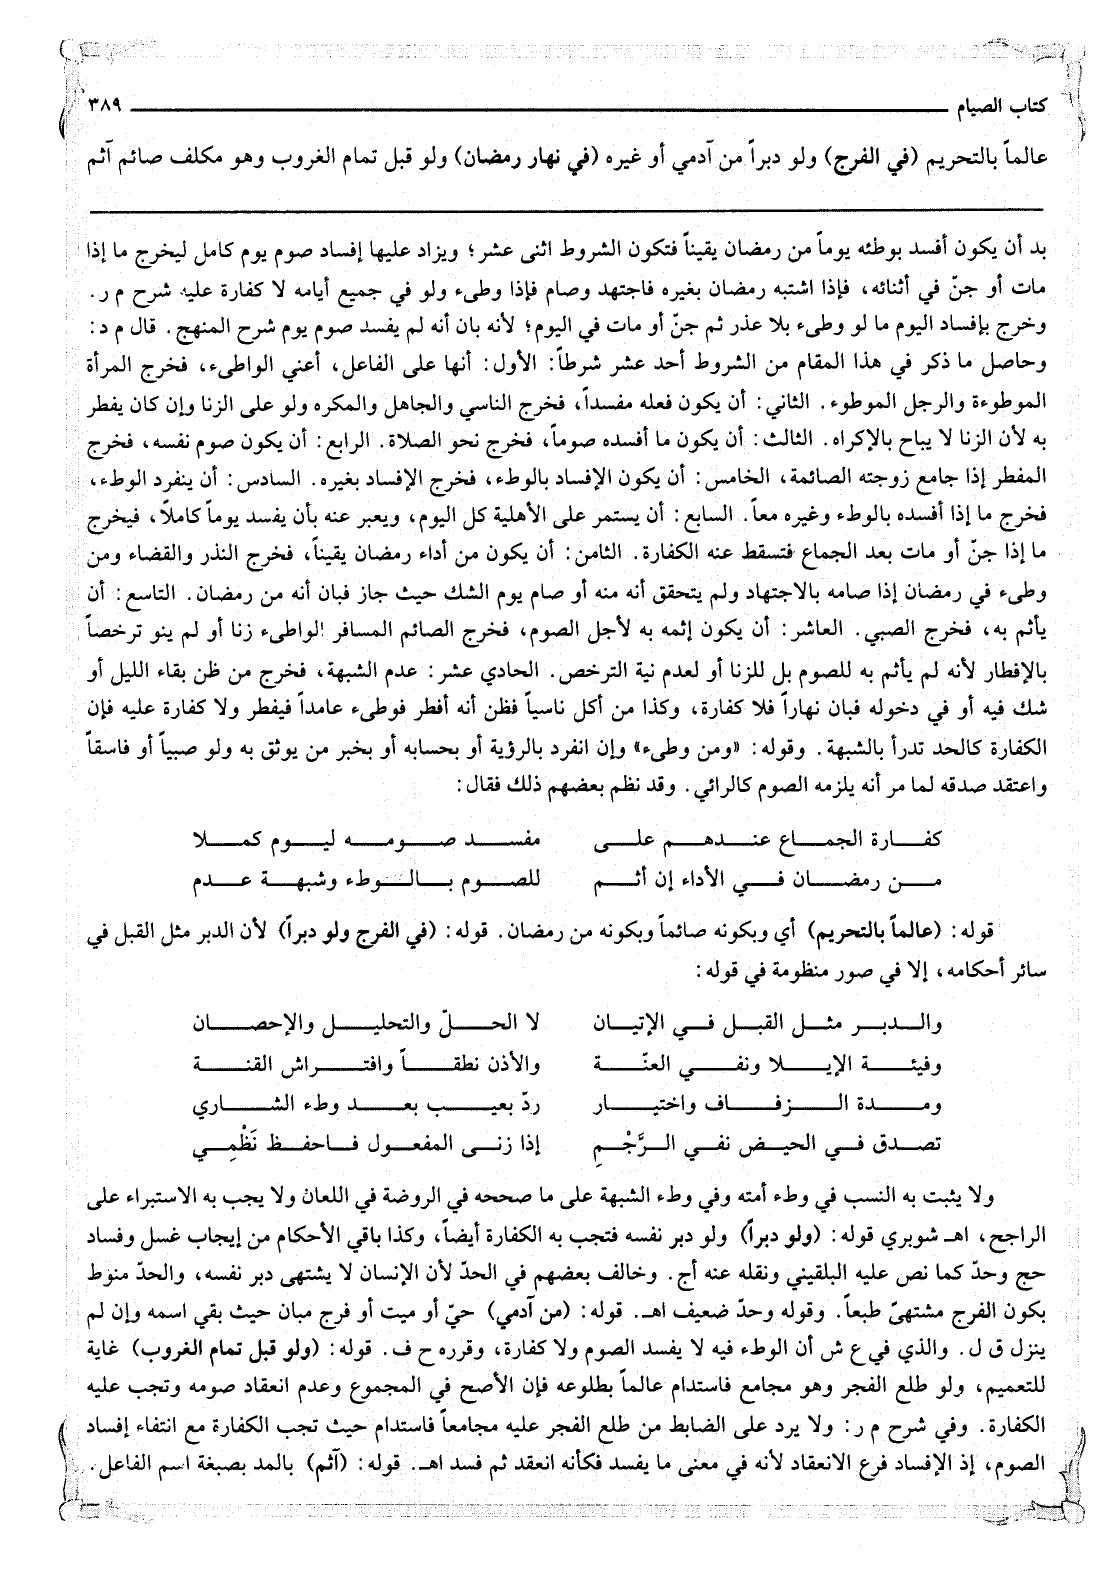 كتاب الصيام ٣٨٩
عالماً بالتحريم (في الفرج) ولو دبراً من آدمي أو غيره (في نهار رمضان) ولو قبل تمام الغروب وهو مكلف صائم آثم
بد أن يكون أفسد بوطئه يوماً من رمضان يقيناً فتكون الشروط اثنى عشر؛ ويزاد عليها إفساد صوم يوم كامل ليخرج ما إذا
مات أو جنّ في أثنائه، فإذا اشتبه رمضان بغيره فاجتهد وصام فإذا وطىء ولو في جميع أيامه لا كفارة عليه شرح م ر.
وخرج بإفساد اليوم ما لو وطىء بلا عذر ثم جنّ أو مات في اليوم؛ لأنه بان أنه لم يفسد صوم يوم شرح المنهج. قال م د:
وحاصل ما ذكر في هذا المقام من الشروط أحد عشر شرطاً: الأول: أنها على الفاعل، أعني الواطىء، فخرج المرأة
الموطوءة والرجل الموطوء. الثاني: أن يكون فعله مفسداً، فخرج الناسي والجاهل والمكره ولو على الزنا وإن كان يفطر
به لأن الزنا لا يباح بالإكراه. الثالث: أن يكون ما أفسده صوماً، فخرج نحو الصلاة. الرابع: أن يكون صوم نفسه، فخرج
المفطر إذا جامع زوجته الصائمة، الخامس: أن يكون الإفساد بالوطء، فخرج الإفساد بغيره. السادس: أن ينفرد الوطء،
فخرج ما إذا أفسده بالوطء وغيره معاً. السابع: أن يستمر على الأهلية كل اليوم، ويعبر عنه بأن يفسد يوماً كاملاً، فيخرج
ما إذا جنّ أو مات بعد الجماع فتسقط عنه الكفارة. الثامن: أن يكون من أداء رمضان يقيناً، فخرج النذر والقضاء ومن
وطىء في رمضان إذا صامه بالاجتهاد ولم يتحقق أنه منه أو صام يوم الشك حيث جاز فبان أنه من رمضان. التاسع: أن
يأثم به، فخرج الصبي. العاشر: أن يكون إثمه به لأجل الصوم، فخرج الصائم المسافر الواطىء زنا أو لم ينو ترخصاً
بالإفطار لأنه لم يأثم به للصوم بل للزنا أو لعدم نية الترخص. الحادي عشر: عدم الشبهة، فخرج من ظن بقاء الليل أو
شك فيه أو في دخوله فبان نهاراً فلا كفارة، وكذا من أكل ناسياً فظن أنه أفطر فوطىء عامداً فيفطر ولا كفارة عليه فإن
الكفارة كالحد تدرأ بالشبهة. وقوله: «ومن وطىء» وإن انفرد بالرؤية أو بحسابه أو بخبر من يوثق به ولو صبياً أو فاسقاً
واعتقد صدقه لما مر أنه يلزمه الصوم كالرائي. وقد نظم بعضهم ذلك فقال:
كفارة الجماع عندهم على مفسد صومه ليوم كملا
من رمضان في الأداء إن أثم للصوم بالوطء وشبهة عدم
قوله: (عالماً بالتحريم) أي وبكونه صائماً وبكونه من رمضان. قوله: (في الفرج ولو دبراً) لأن الدبر مثل القبل في
سائر أحكامه، إلا في صور منظومة في قوله:
والدبر مثل القبل في الإتيان لا الحلّ والتحليل والإحصان
وفيئة الإيلا ونفي العنّة والأذن نطقاً وافتراش القنة
ومدة الزفاف واختيار ردّ بعيب بعد وطء الشاري
تصدق في الحيض نفي الرَّجْمِ إذا زنى المفعول فاحفظ نَظْمِي
ولا يثبت به النسب في وطء أمته وفي وطء الشبهة على ما صححه في الروضة في اللعان ولا يجب به الاستبراء على
الراجح، اهـ شوبري قوله: (ولو دبراً) ولو دبر نفسه فتجب به الكفارة أيضاً، وكذا باقي الأحكام من إيجاب غسل وفساد
حج وحدّ كما نص عليه البلقيني ونقله عنه أج. وخالف بعضهم في الحدّ لأن الإنسان لا يشتهى دبر نفسه، والحدّ منوط
بكون الفرج مشتهىّ طبعاً. وقوله وحدّ ضعيف اهـ. قوله: (من آدمي) حيّ أو ميت أو فرج مبان حيث بقي اسمه وإن لم
ينزل ق ل. والذي في ع ش أن الوطء فيه لا يفسد الصوم ولا كفارة، وقرره ح ف. قوله: (ولو قبل تمام الغروب) غاية
للتعميم، ولو طلع الفجر وهو مجامع فاستدام عالماً بطلوعه فإن الأصح في المجموع وعدم انعقاد صومه وتجب عليه
الكفارة. وفي شرح م ر: ولا يرد على الضابط من طلع الفجر عليه مجامعاً فاستدام حيث تجب الكفارة مع انتفاء إفساد
الصوم، إذ الإفساد فرع الانعقاد لأنه في معنى ما يفسد فكأنه انعقد ثم فسد اهـ. قوله: (آثم) بالمد بصبغة اسم الفاعل.